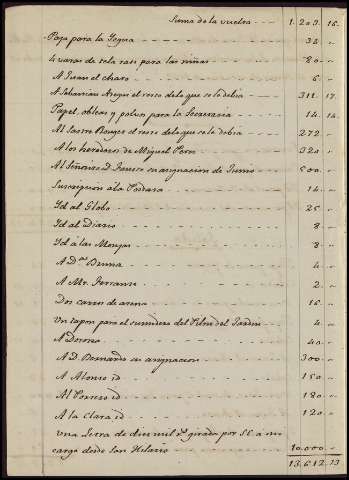 Suma de la vuelta - - - 1.203. 15.
Paja para la Yegua - - - 32. "
4 varas de tela rasi para las niñas - - - 80. "
A Juan el charo - - - 6. "
A Sebastian el resto de la que se le debia - - - 311. 17.
Papel, obleas y polvos para la Secretaria - - - 14. 14.
Al Sastre Rouget el resto de la que se le debia - - - 272. "
A los herederos de Miguel Pern - - - 320. "
Al Señorito D. su asignacion de Junio - - - 500. "
Suscripcion a la Posdata - - - 14. "
Yd al Globo - - - 25. "
Yd al Diario - - - 8. "
Yd á las Monjas - - - 8. "
A D.ª Bruna - - - 4. "
A Mr. Ferranse - - - 2. "
Dos carros de arena - - - 16. "
Un tapon para el sumidero del Pilon del Jardin - - - 4. "
A - - - 40. "
A D. Bernardo su asignacion - - - 300. "
A Alonso id - - - 150. "
Al id - - - 180. "
A la Clara id - - - 120. "
Una Letra de diez mil r.s girada por S.E. a mi
cargo desde San Hilario - - - 10.000. "
13.612. 13